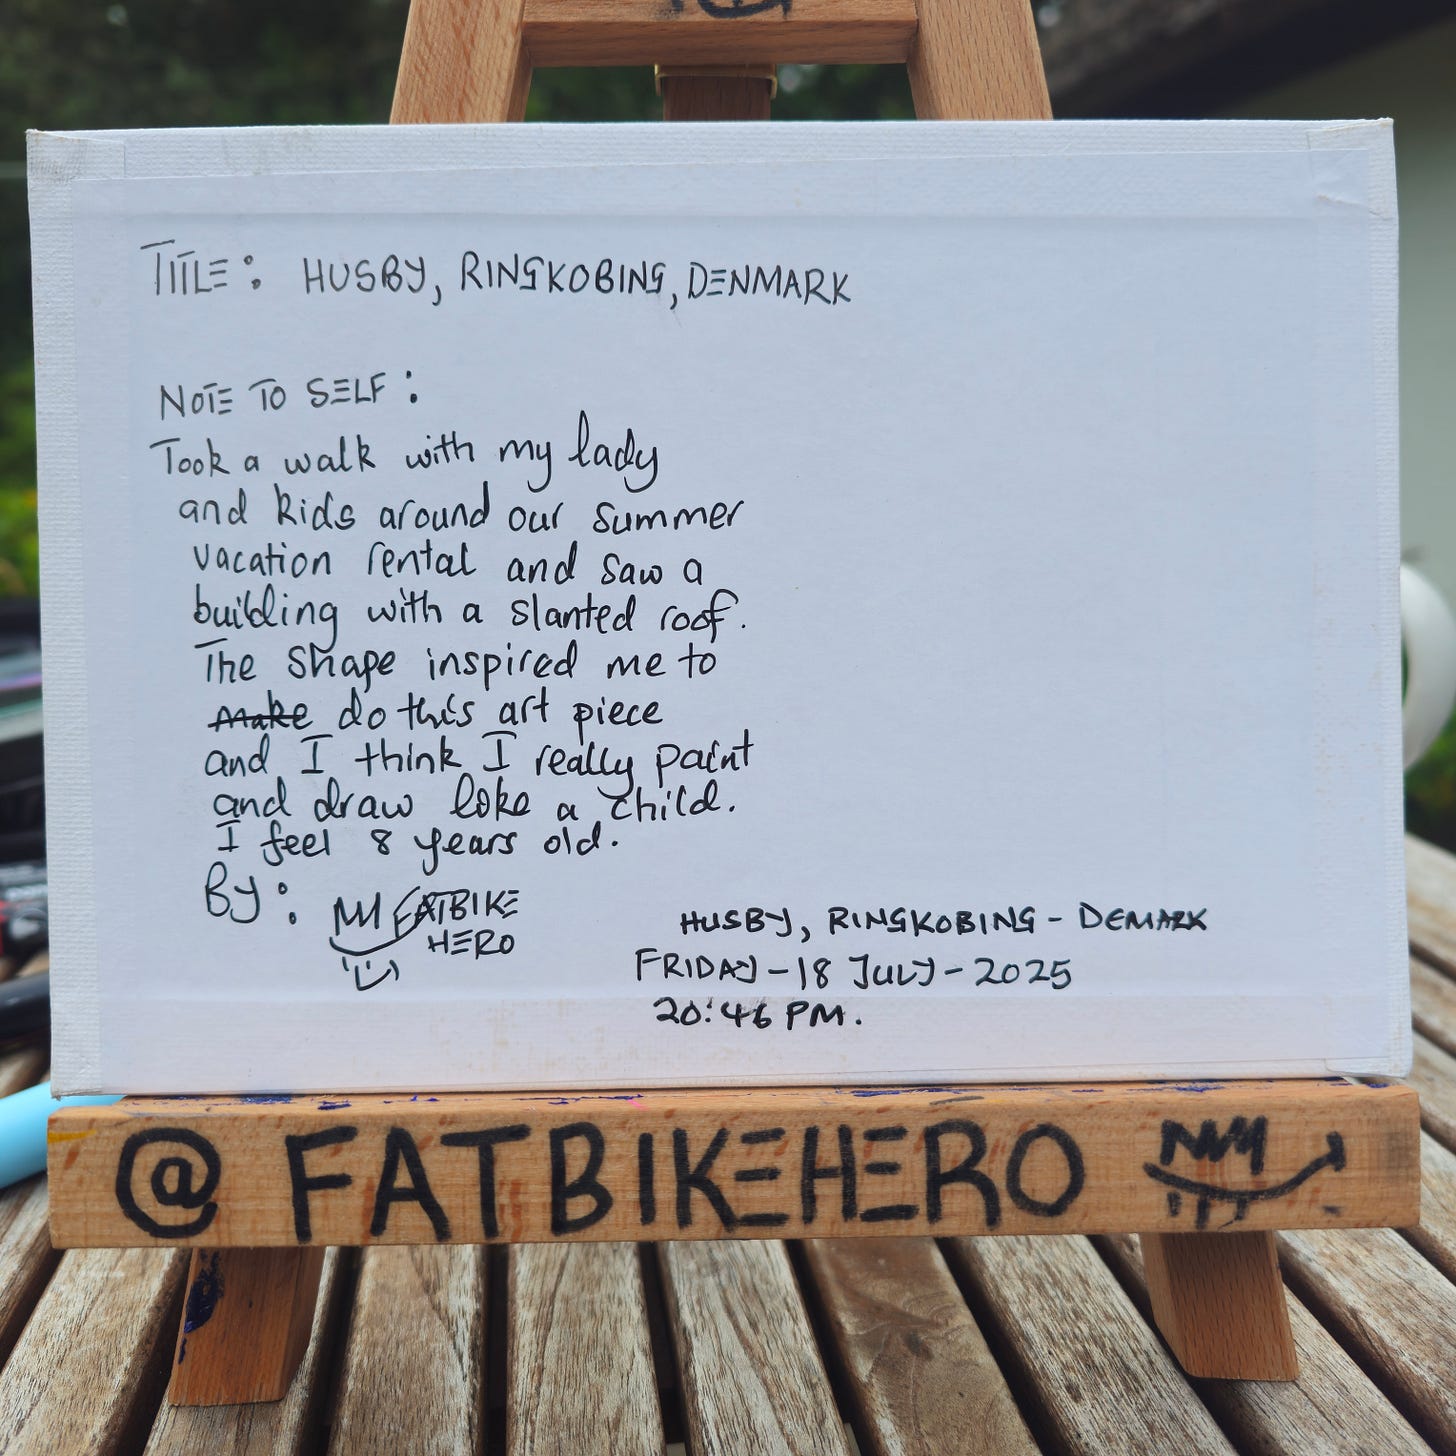 TITLE: HUSBY, RINGKOBING, DENMARK
NOTE TO SELF:
Took a walk with my lady
and kids around our summer
vacation rental and saw a
building with a slanted roof.
The shape inspired me to
make do this art piece
and I think I really paint
and draw loke a child.
I feel 8 years old.
By: FATBIKE
HERO
HUSBY, RINGKOBING - DEMARK
FRIDAY - 18 JULY - 2025
20:46 PM.
@FATBIKEHERO